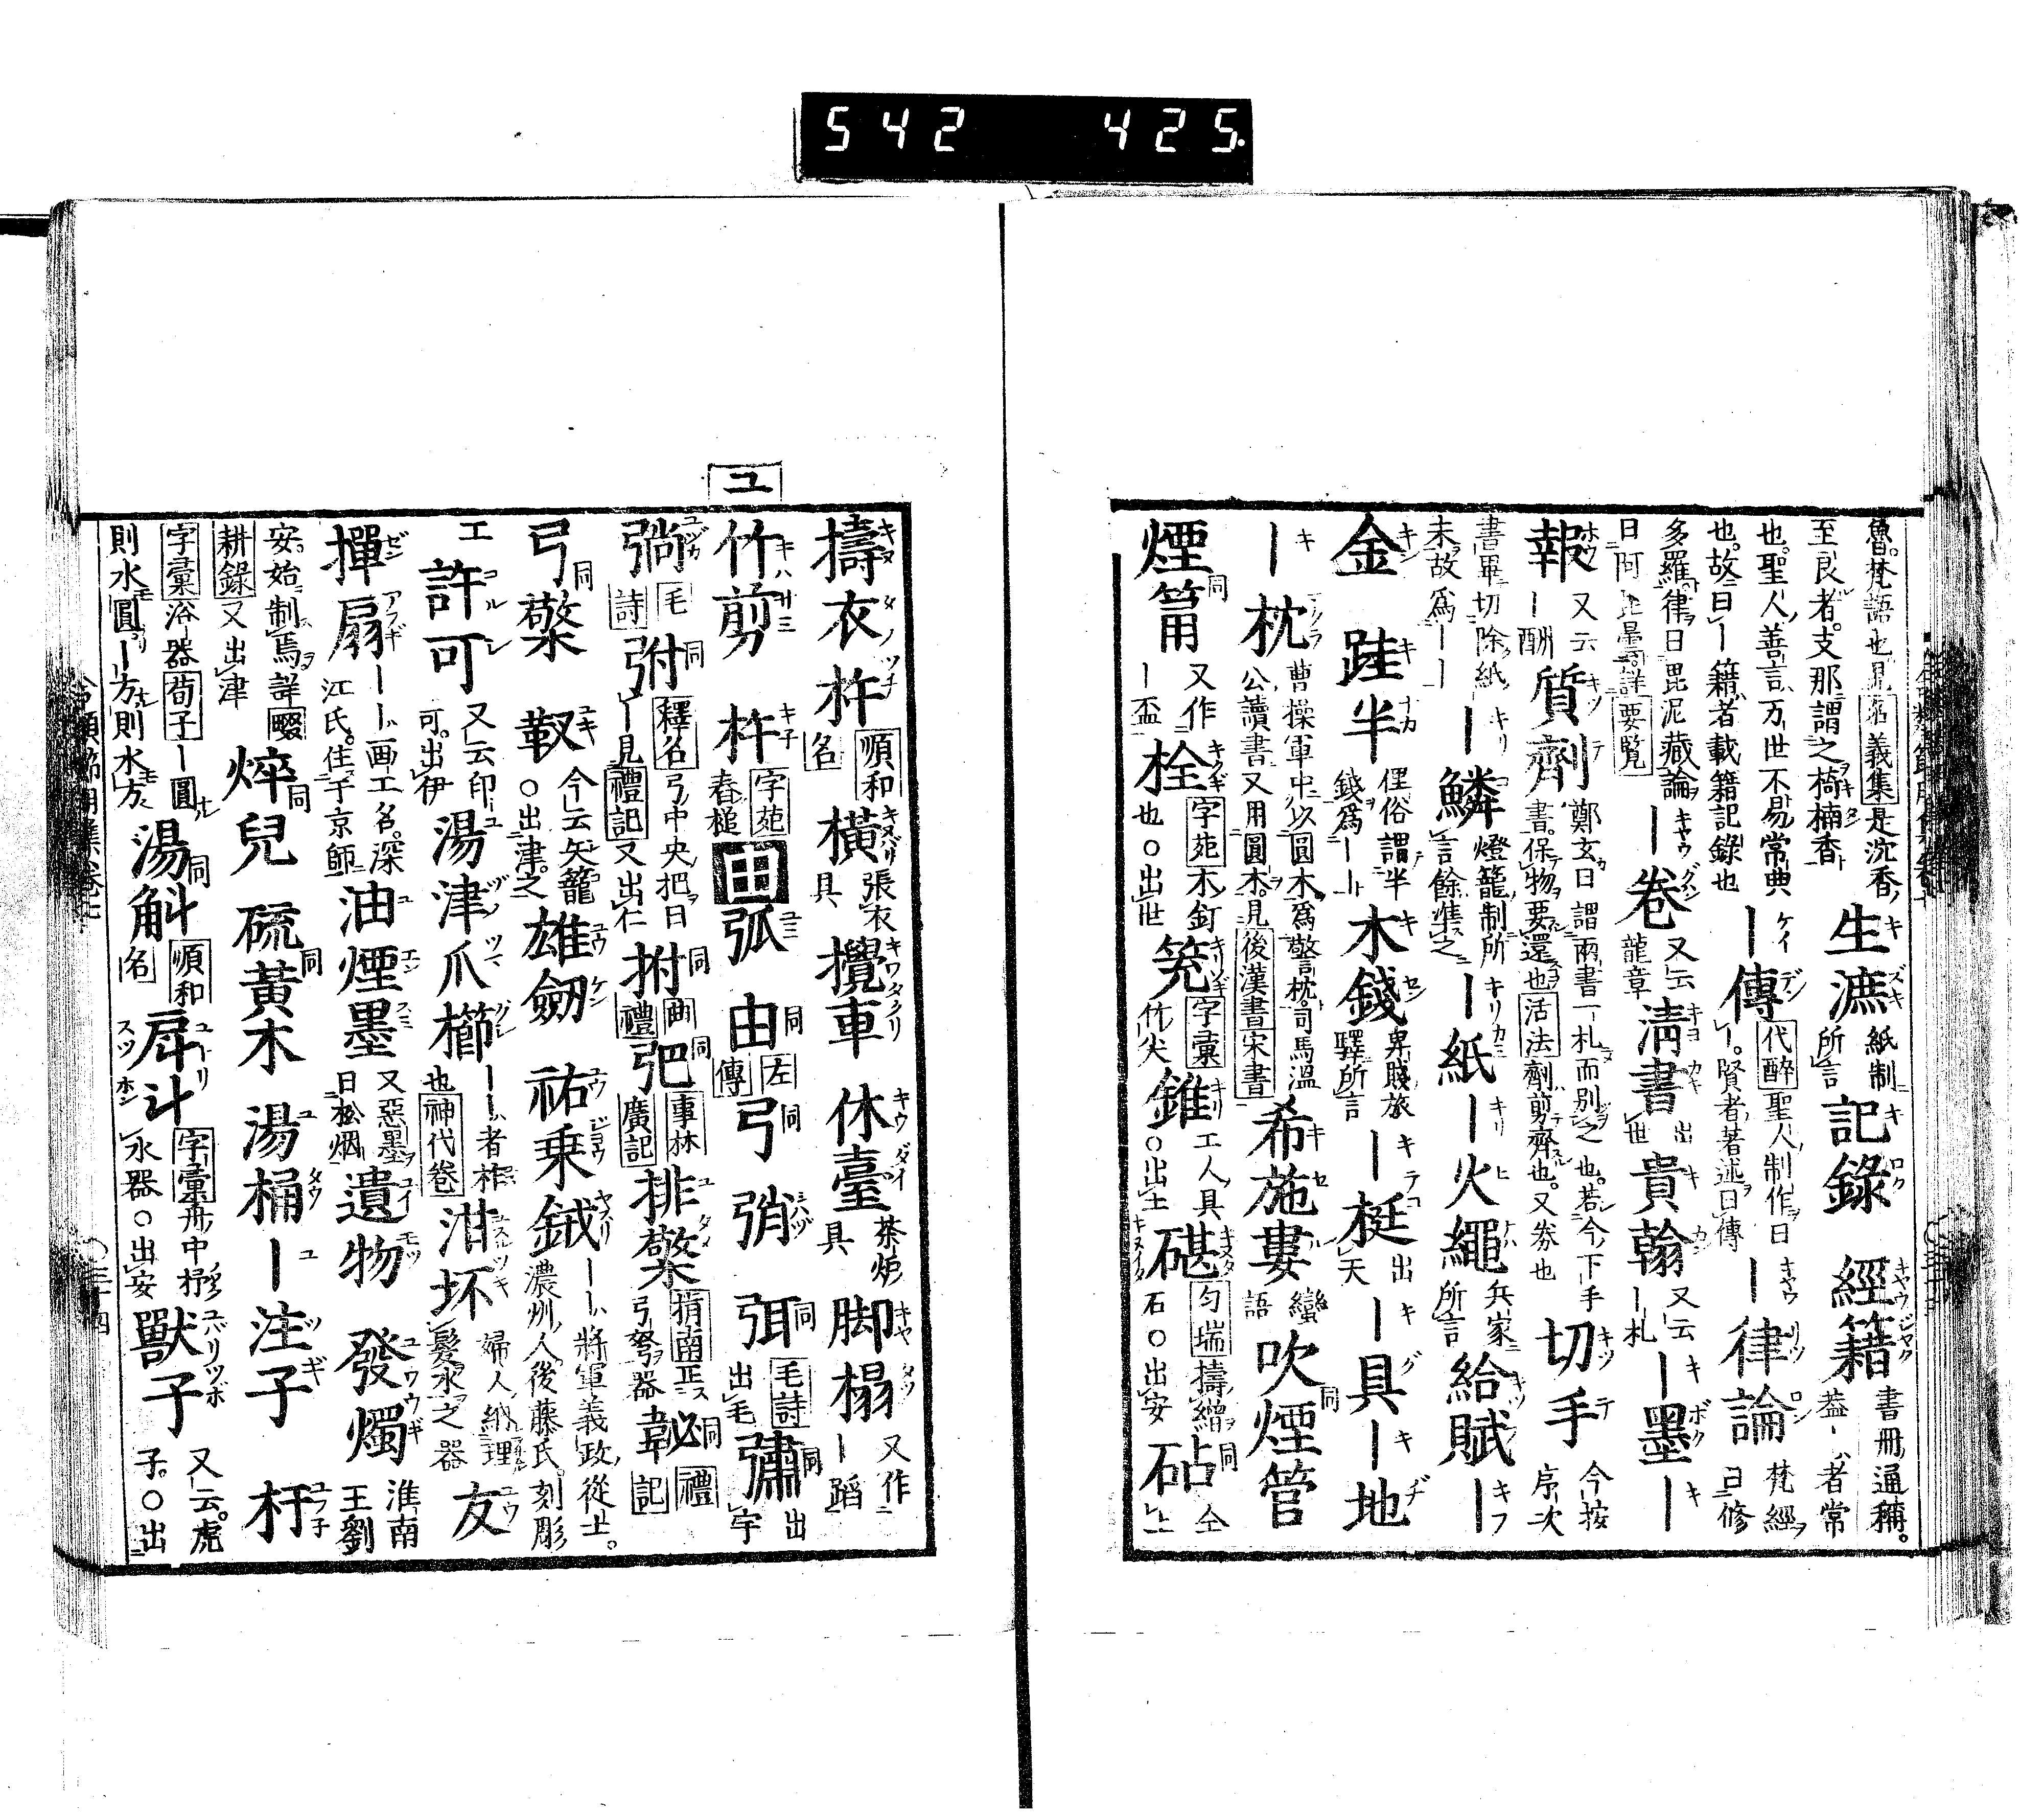 542 425
魯。梵語也見名義集是沈香ノ
至良者。支那謂之椅楠香ト
生漉 紙制所言
記錄
經籍 書冊通稱。蓋一ハ者常
也。聖人善言万世不易常典
也。故曰一籍者載籍記錄也
一傳 代醉聖人制作曰一。賢者著述曰傳
一律論 梵經曰修
多羅律曰毘泥藏論
曰阿毘曇。詳要覧
一卷 又云龍章
淸書 出世
貴翰 又云一札
一墨
報 又云一酬
質劑 鄭玄曰謂兩書一札而別之也。若今下手書。保物要還也活法劑剪齊也。又券也
切手 今按序次
書畢切除紙
未故爲一一
一鱗 燈籠制所言餘準之
一紙
一火繩 兵家所言
給賦
金
跬半 俚俗謂半錢爲一一
木錢 卑賤旅驛所言
一梃 出天
一具
一地
一枕 曹操軍中以圓木爲警枕司馬溫公讀書又用圓木。見後漢書宋書
希施婁 蠻語
吹煙管 同
煙筩 同 又作一盃
栓 字苑木釘也。○出世
筅 字彙竹尖
錐 工人具○出土
碪 匀瑞擣繒石○出安
砧 同 仝上
擣衣杵 順和名
橫 張衣具
攪車
休臺 茶炉具
脚榻 又作一蹈
ユ
竹剪
杵 字苑舂槌
弧
由 同 左傳
弓 同
弰
弭 同 毛詩出毛
彇 同 出宇
弽 毛詩
弣 同 釋名弓中央把曰一見禮記又出仁
拊 同 曲禮
弝 同 事林廣記
排檠 指南正弓弩器
䪐 同 禮記
弓檠 同
靫 今云矢籠○出津之
雄劔
祐乗鉞 一一ハ將軍義政從士。濃州人後藤氏刻彫
工
許可 又云印可。出伊
湯津爪櫛 一一ハ者柞也神代卷
泔坏 婦人紙理髮水之器
友
揮扇 一一ハ画工名。深江氏。住于京師
油煙墨 又惡墨曰松烟
遺物
發燭 淮南王劉
安。始制焉詳畷
耕錄又出津
焠兒 同
硫黃木 同
湯桶
一注子
杅
字彙浴器荀子一圓
則水圓一方則水方
湯斛 同 順和名
戽斗 字彙舟中抒水器○出安
獸子 又云。虎子。○出